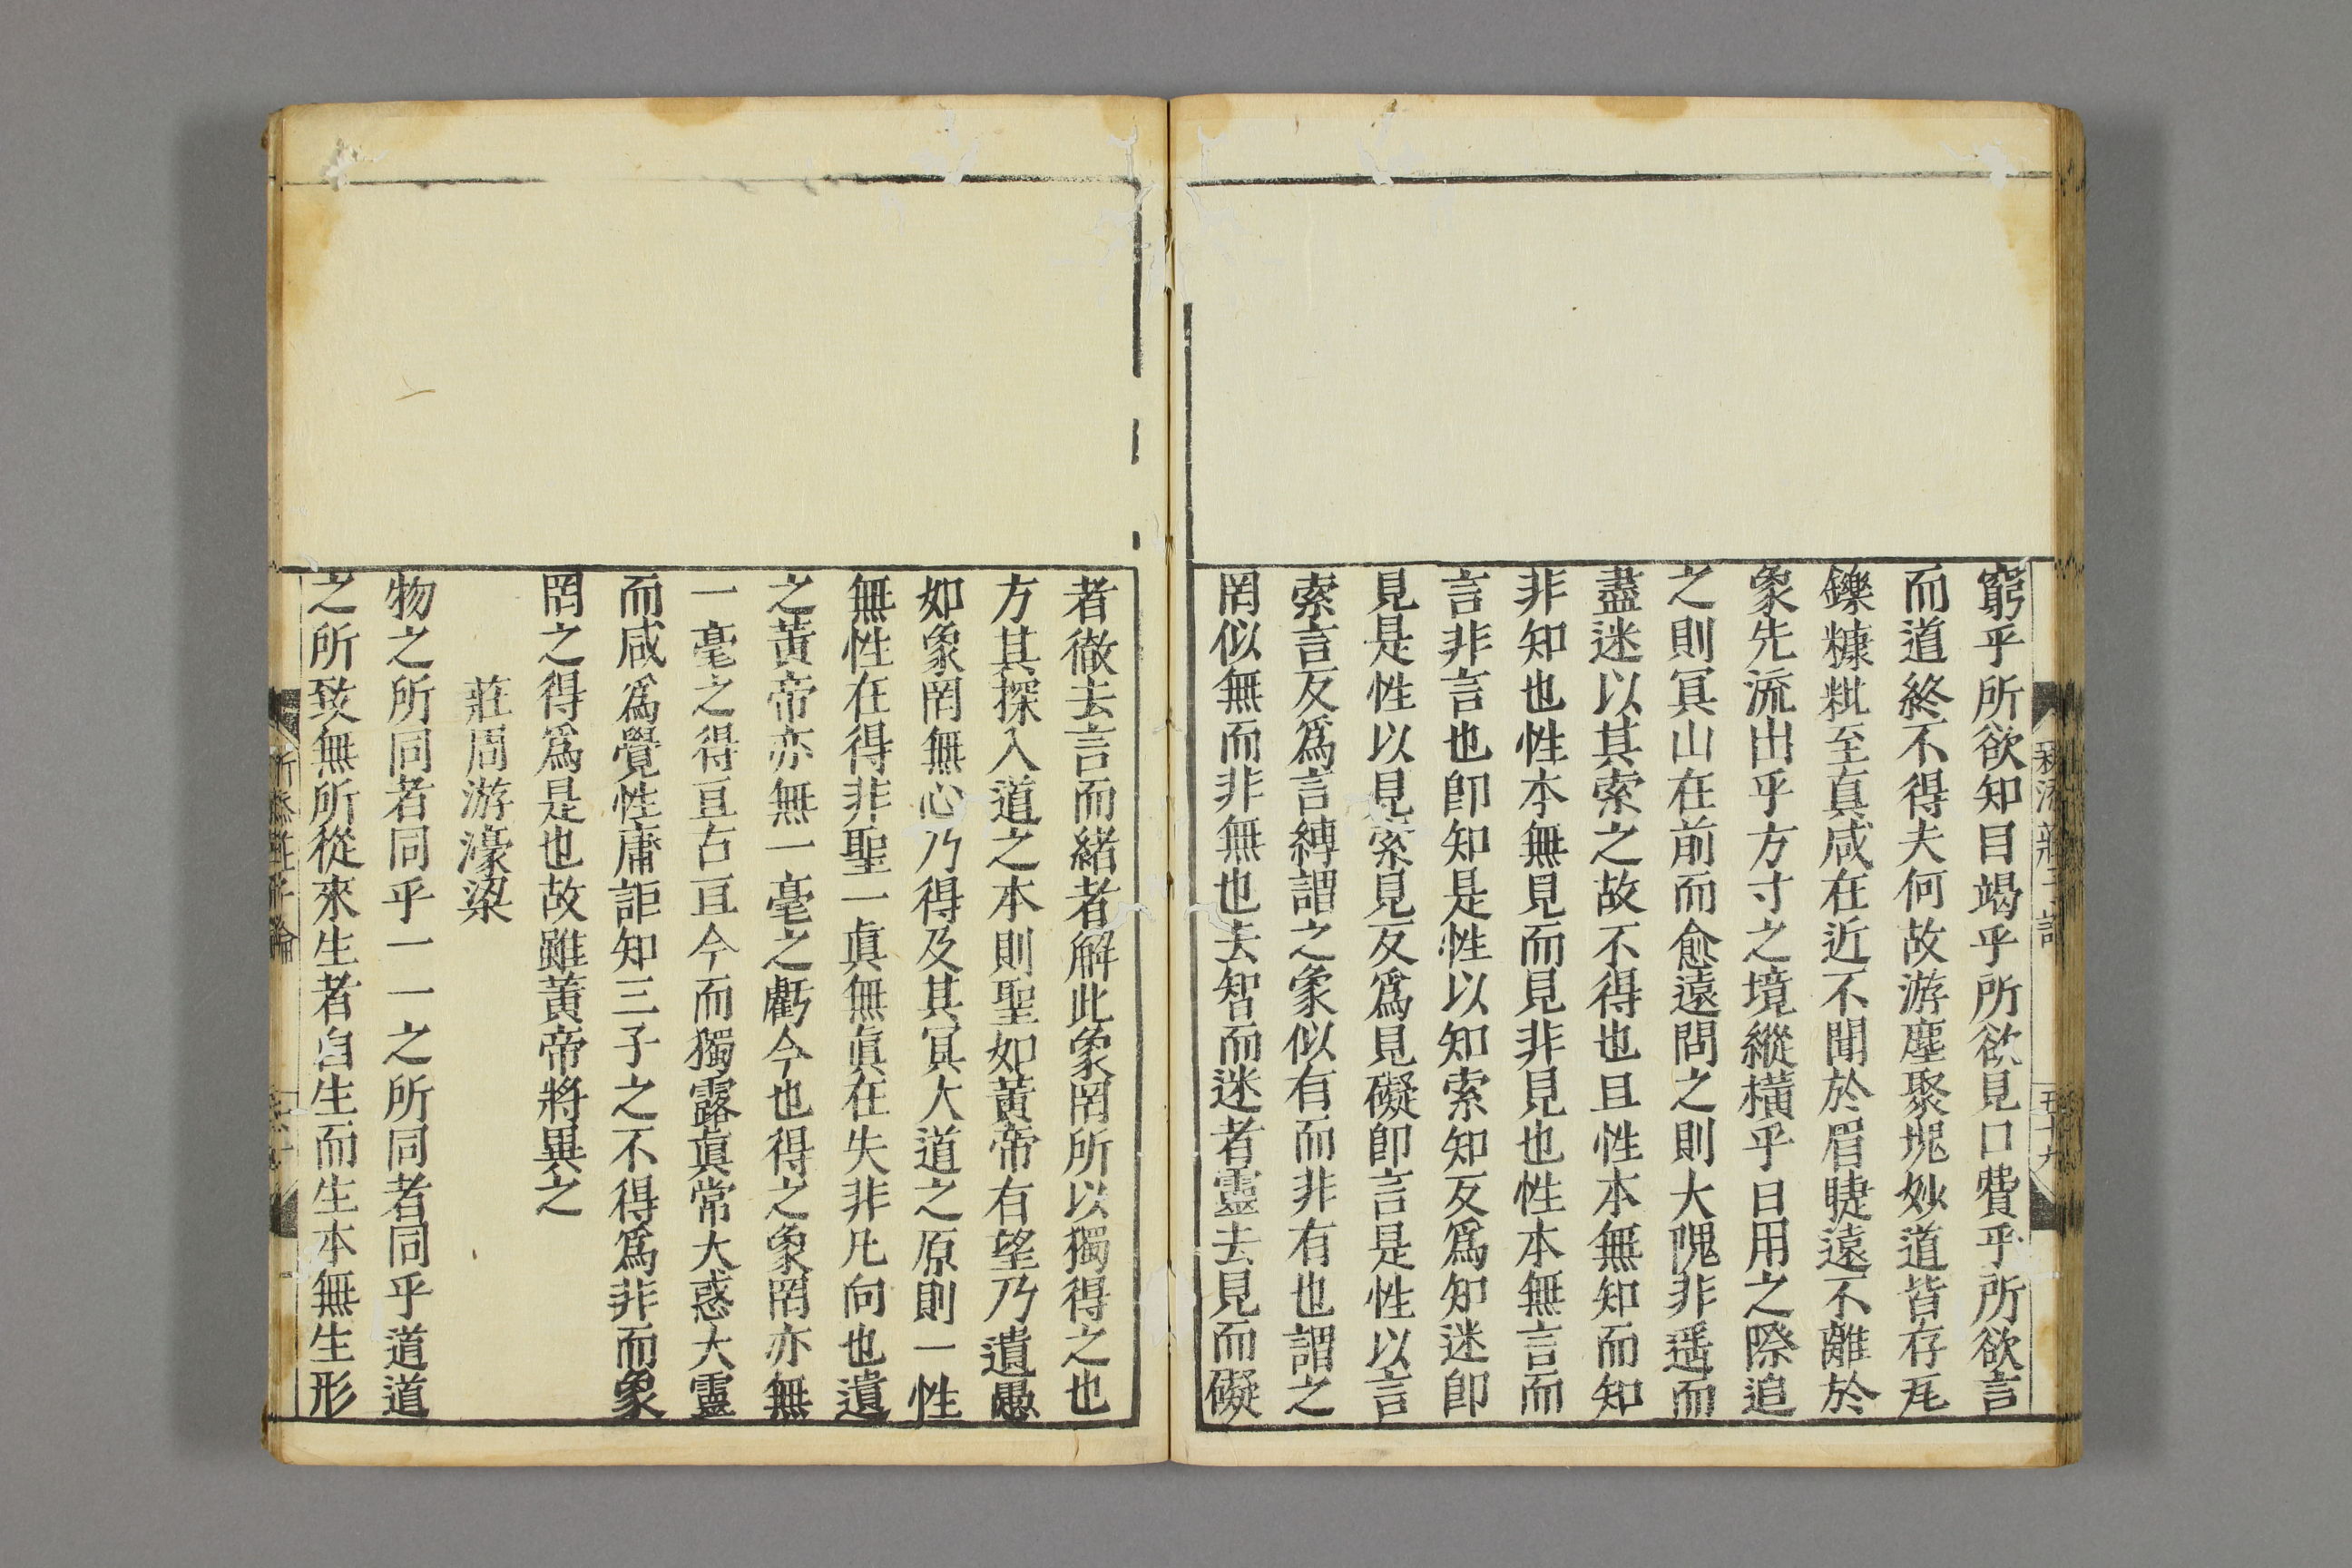 窮乎所欲知目竭乎所欲見口費乎所欲言
而道終不得夫何故游塵聚塊妙道皆存瓦
鑠糠粃至真咸在近不聞於眉睫遠不離於
象先流出乎方寸之境縱橫乎日用之際追
之則冥山在前而愈遠問之則大隗非遥而
盡迷以其索之故不得也且性本無知而知
非知也性本無見而見非見也性本無言而
言非言也卽知是性以知索知反爲知迷卽
見是性以見索見反爲見礙卽言是性以言
索言反爲言縛謂之象似有而非有也謂之
罔似無而非無也去智而迷者靈去見而礙
者徹去言而緒者解此象罔所以獨得之也
方其探入道之本則聖如黃帝有望乃遺愚
如象罔無心乃得及其冥大道之原則一性
無性在得非聖一眞無眞在失非凡向也遺
之黃帝亦無一毫之虧今也得之象罔亦無
一毫之得亘古亘今而獨露眞常大惑大靈
而咸爲覺性庸詎知三子之不得爲非而象
罔之得爲是也故雖黃帝將異之
莊周游濠梁
物之所同者同乎一一之所同者同乎道道
之所致無所從來生者自生而生本無生形